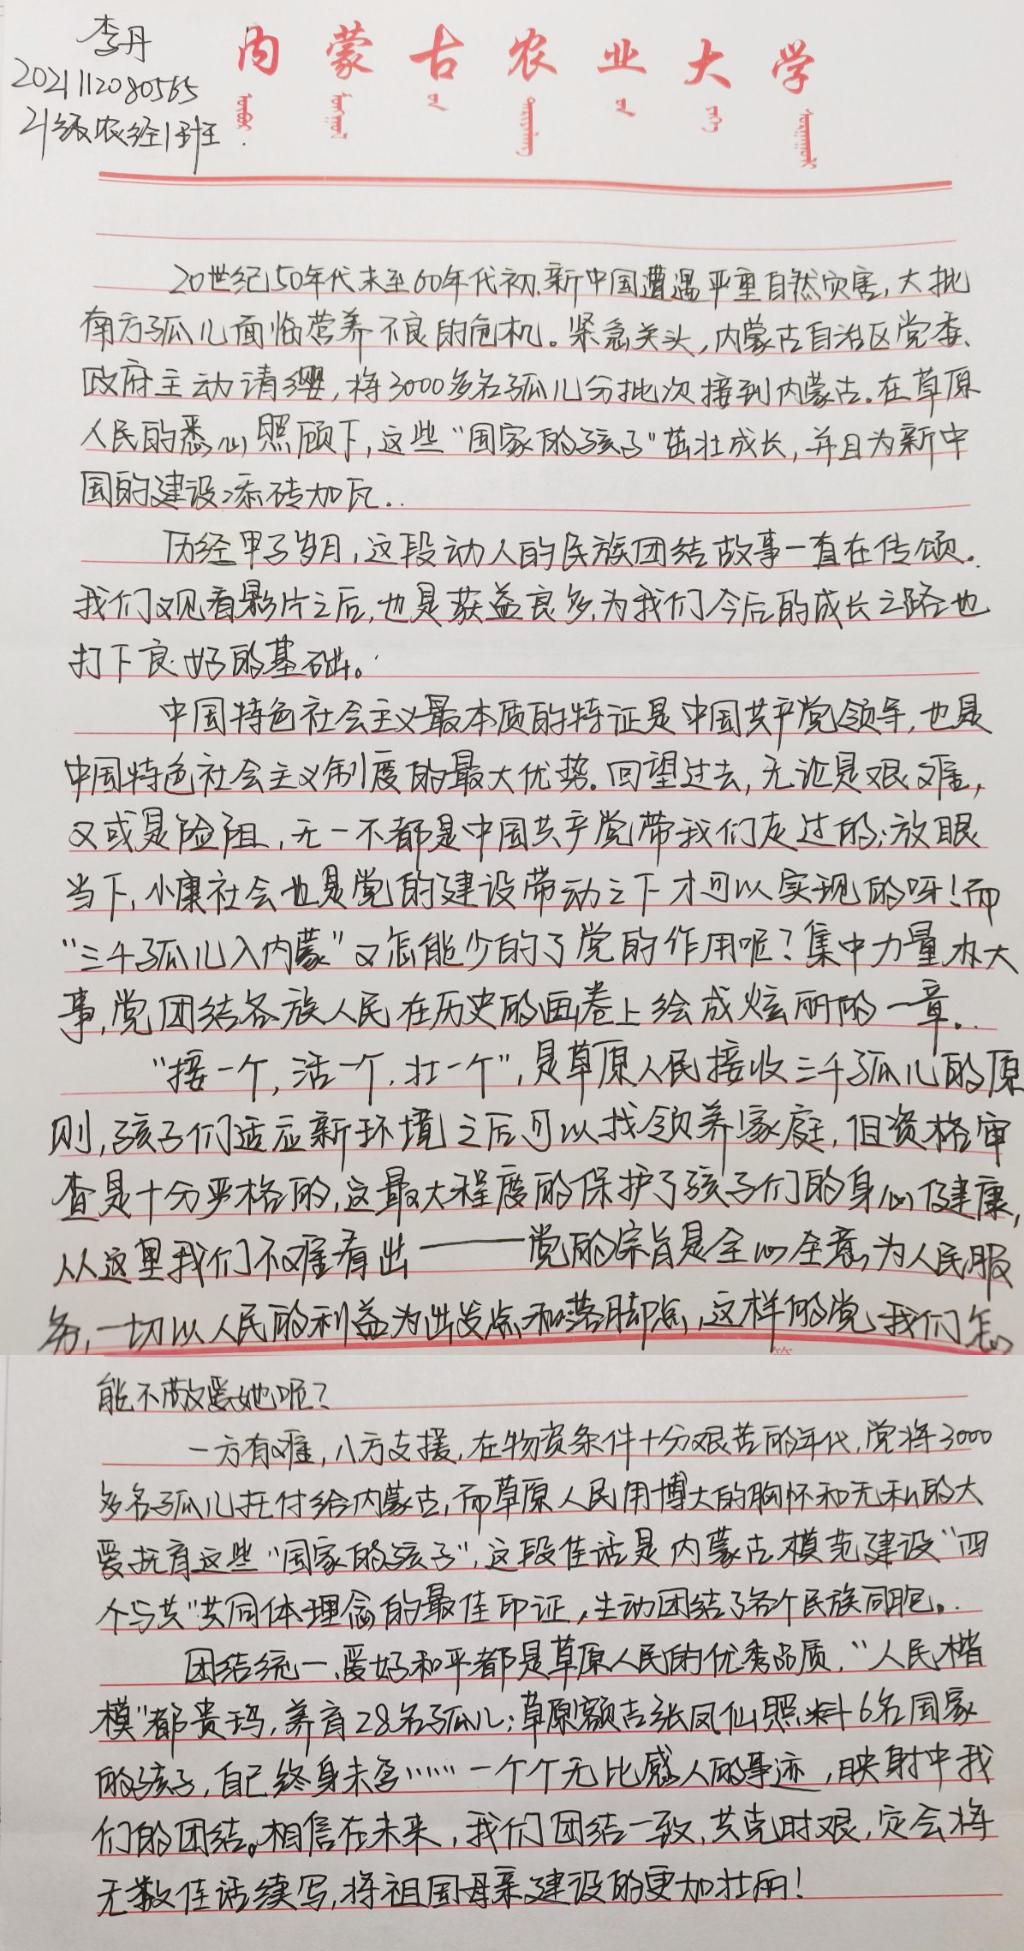 李丹
2021112080565
21级农经1班
内蒙古农业大学
20世纪50年代末至60年代初,新中国遭遇严重自然灾害,大批
南方孤儿面临营养不良的危机。紧急关头,内蒙古自治区党委、
政府主动请缨,将3000多名孤儿分批次接到内蒙古。在草原
人民的悉心照顾下,这些“国家的孩子”茁壮成长,并且为新中
国的建设添砖加瓦。
历经甲子岁月,这段动人的民族团结故事一直在传颂。
我们观看影片之后,也是获益良多,为我们今后的成长之路也
打下良好的基础。
中国特色社会主义最本质的特征是中国共产党领导,也是
中国特色社会主义制度的最大优势。回望过去,无论是艰难,
又或是险阻,无一不都是中国共产党带我们走过的;放眼
当下,小康社会也是党的建设带动之下才可以实现的呀!而
“三千孤儿入内蒙”又怎能少的了党的作用呢?集中力量办大
事,党团结各族人民在历史的画卷上绘成炫丽的一章。
“接一个,活一个,壮一个”,是草原人民接收三千孤儿的原
则,孩子们适应新环境之后可以找领养家庭,但资格审
查是十分严格的,这最大程度的保护了孩子们的身心健康,
从这里我们不难看出——党的宗旨是全心全意为人民服
务,一切以人民的利益为出发点和落脚点,这样的党我们怎
能不敬爱她呢?
一方有难,八方支援,在物资条件十分艰苦的年代,党将3000
多名孤儿托付给内蒙古,而草原人民用博大的胸怀和无私的大
爱抚育这些“国家的孩子”,这段佳话是内蒙古模范建设“四
个与共”共同体理念的最佳印证,生动团结了各个民族同胞。
团结统一、爱好和平都是草原人民的优秀品质,“人民楷
模”都贵玛,养育28名孤儿;草原额吉张凤仙照料6名国家
的孩子,自己终身未孕……一个个无比感人的事迹,映射中我
们的团结。相信在未来,我们团结一致,共克时艰,定会将
无数佳话续写,将祖国母亲建设的更加壮丽!